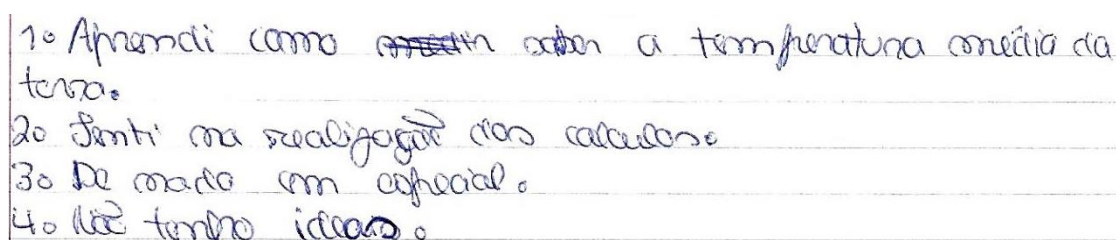 1. Aprendi como saber a temperatura média da
terra.
2. Senti na realização dos calculos.
3. De nada em especial.
4. Não tenho ideias.